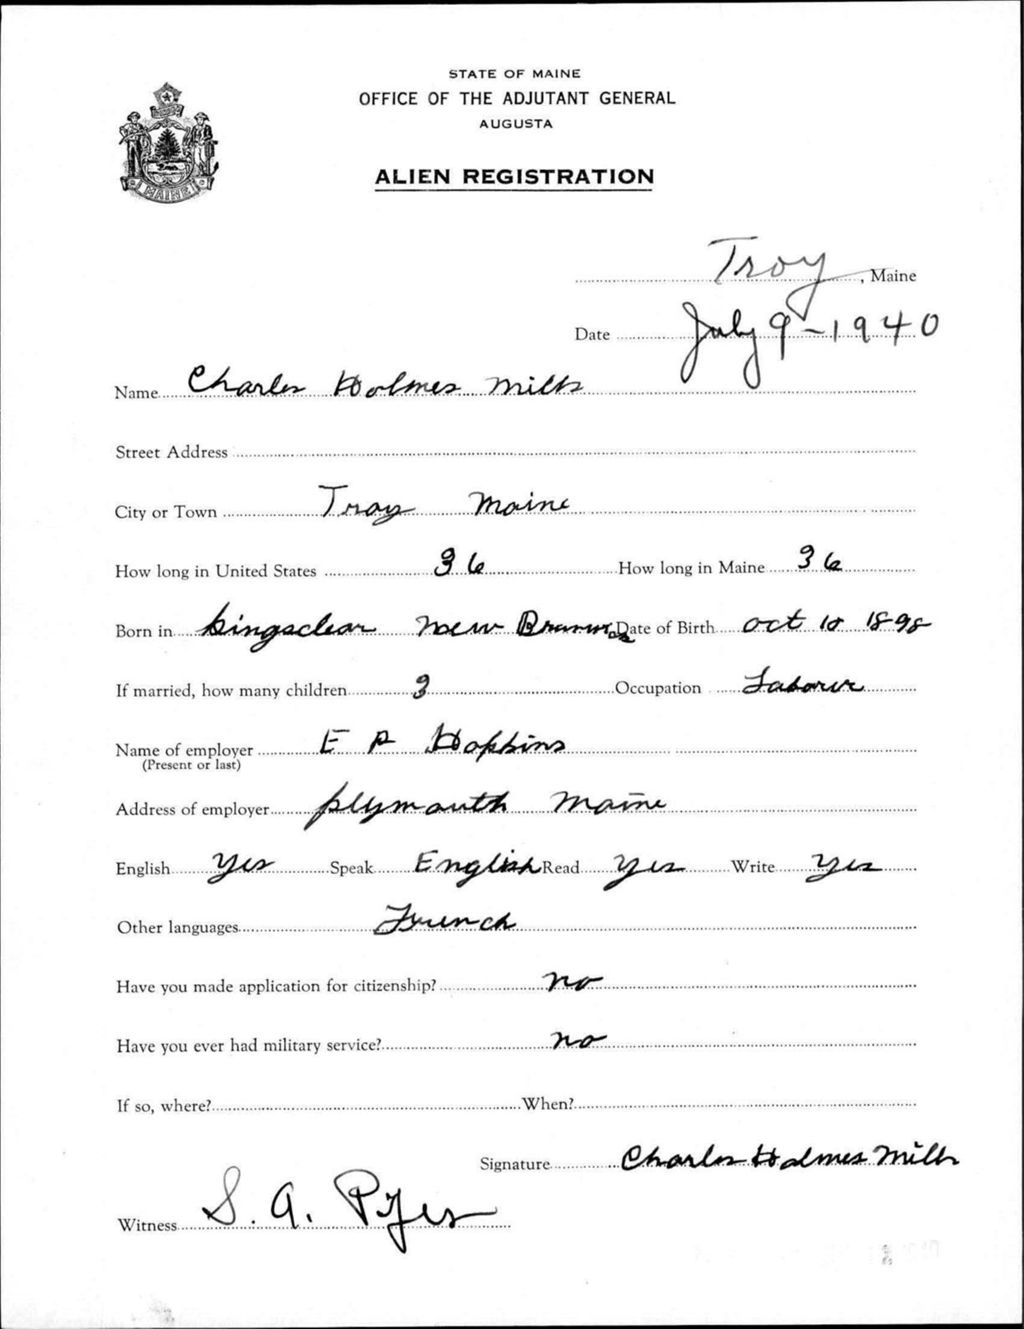 STATE OF MAINE
OFFICE OF THE ADJUTANT GENERAL
AUGUSTA
ALIEN REGISTRATION
MAINE
Troy, Maine
Date July 9-1940
Name Charles Holmes Mills
Street Address
City or Town Troy Maine
How long in United States 36 How long in Maine 36
Born in kingsclear New Date of Birth Oct 10 1898
If married, how many children 3 Occupation Laborer
Name of employer E P Hopkins
(Present or last)
Address of employer plymouth Maine
English Yes Speak English Read Yes Write Yes
Other languages French
Have you made application for citizenship? no
Have you ever had military service? no
If so, where? When?
Signature Charles Holmes Mills
Witness S. A.